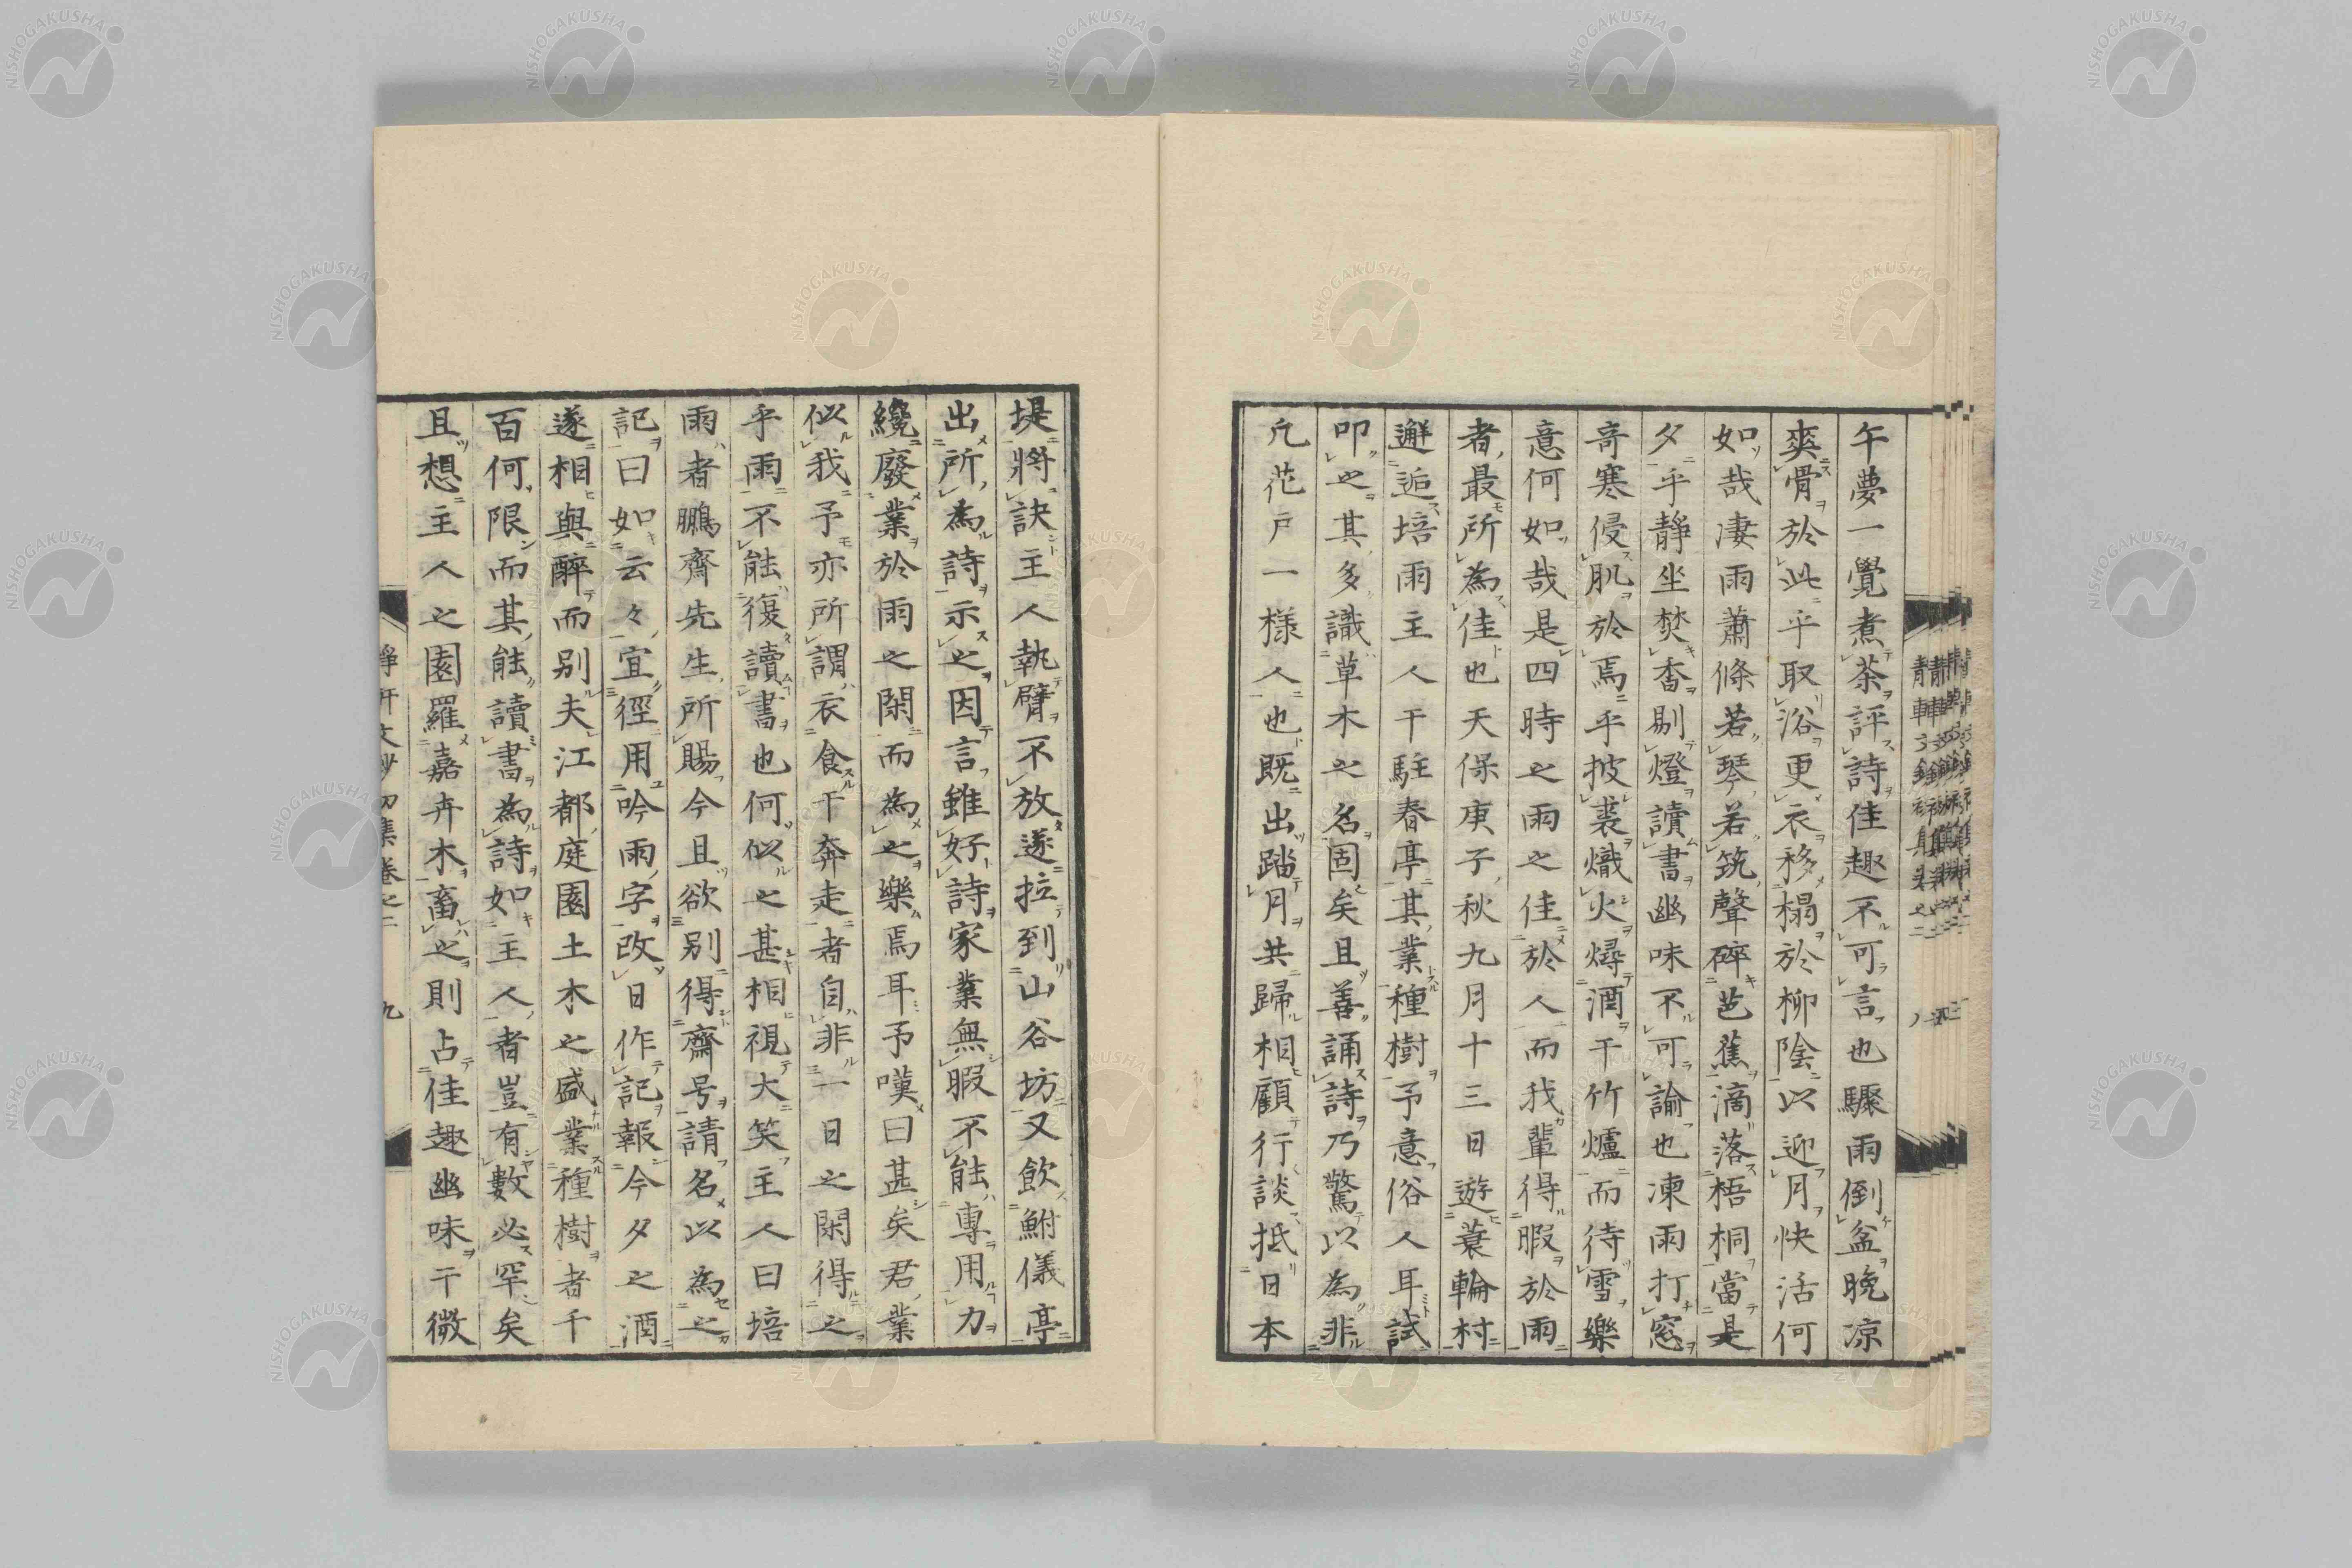 午夢一覺煮茶評詩佳趣不可言也驟雨倒盆晚凉
爽骨於此乎取浴更衣移榻於柳陰以迎月快活何
如哉凄雨蕭條若琴若筑聲碎芭蕉滴落梧桐當是
夕乎靜坐焚香剔燈讀書幽味不可諭也凍雨打窓
奇寒侵肌於焉乎披裘熾火燖酒于竹爐而待雪樂
意何如哉是四時之雨之佳於人而我輩得暇於雨
者最所為佳也天保庚子秋九月十三日遊蓑輪村
邂逅培雨主人于駐春亭其業種樹予意俗人耳試
叩之其多識草木之名固矣且善誦詩乃驚以為非
凡花戸一樣人也既出踏月共歸相顧行談抵日本
堤將訣主人執臂不放遂拉到山谷坊又飲鮒儀亭
出所為詩示之因言雖好詩家業無暇不能專用力
纔廢業於雨之閑而為之樂焉耳予嘆曰甚矣君業
似我予亦所謂衣食于奔走者自非一日之閑得之
乎雨不能復讀書也何似之甚相視大笑主人曰培
雨者鵬齋先生所賜今且欲別得齋号請名以為之
記曰如云々宜徑用吟雨字改日作記報今夕之酒
遂相與醉而別夫江都庭園土木之盛業種樹者千
百何限而其能讀書為詩如主人者豈有數必罕矣
且想主人之園羅嘉卉木畜之則占佳趣幽味于微
靜軒文鈔初集卷之二 九
NISHOGAKUSHA